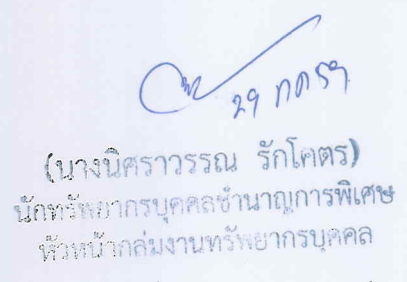 29 กค 59
(นางนิศราวรรณ รักโคตร)
นักทรัพยากรบุคคลชำนาญการพิเศษ
หัวหน้ากลุ่มงานทรัพยากรบุคคล